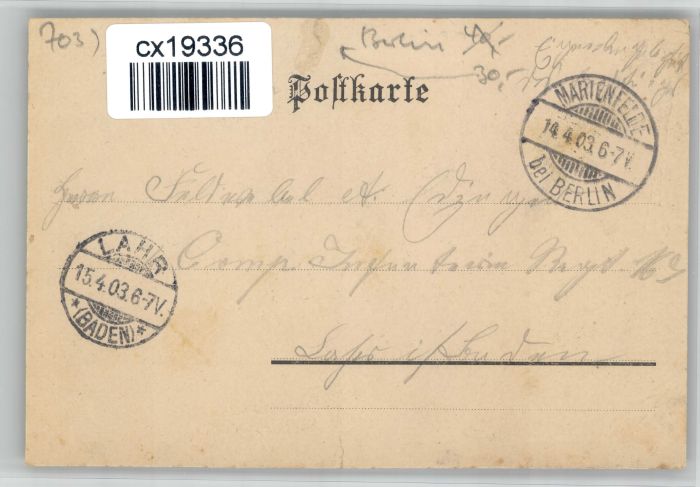 703)
cx19336
Berlin 40,-
30,-
Postkarte
MARIENFELDE
14.4.03.6-7V.
bei BERLIN
Herrn Feldwebel A.
LAHR
15.4.03.6-7V.
*(BADEN)*
Comp Infanterie Regt
Lahr i/ Baden